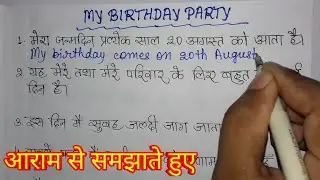 MY BIRTHDAY PARTY
1. मेरा जन्मदिन प्रत्येक साल 20 अगस्त को आता है।
My birthday comes on 20th August
2. यह मेरे तथा मेरे परिवार के लिए बहुत
दिन है।
3. इस दिन मैं सुबह जल्दी जाग जाता
आराम से समझाते हुए